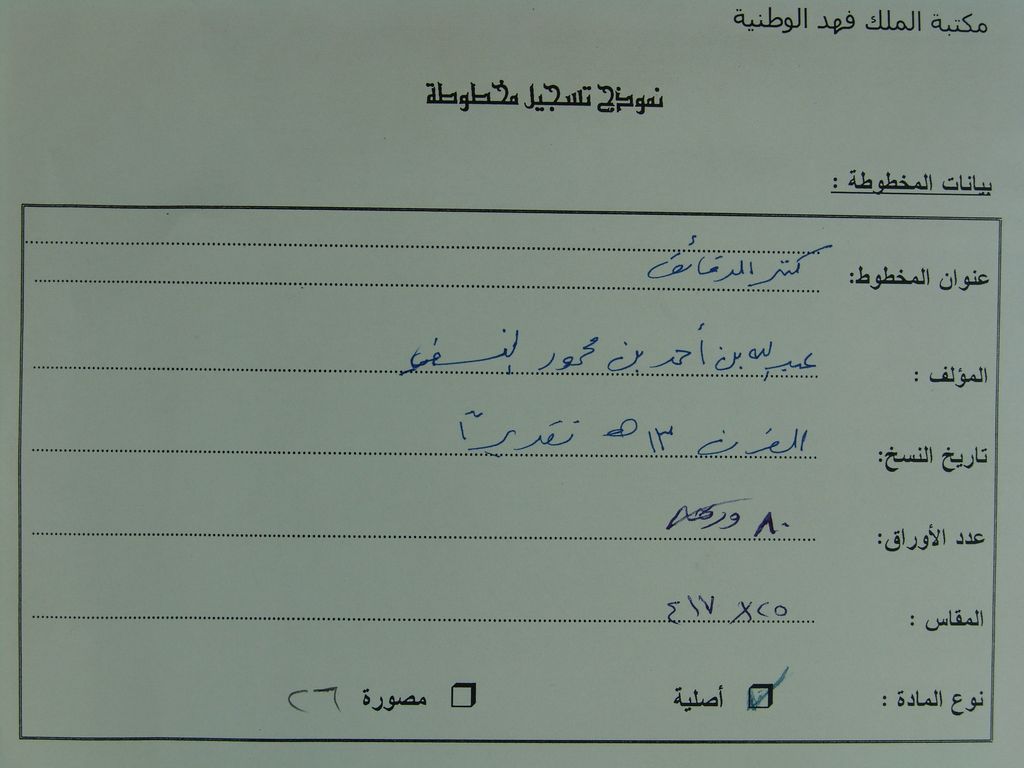 مكتبة الملك فهد الوطنية
نموذج تسجيل مخطوطة
بيانات المخطوطة :
عنوان المخطوط: كنز الدقائق
المؤلف : عبد الله بن أحمد بن محمود النسفي
تاريخ النسخ: القرن ١٣ هـ تقديراً
عدد الأوراق: ٨٠ ورقة
المقاس : ٢٥ × ١٧
نوع المادة : أصلية مصورة ٢٦